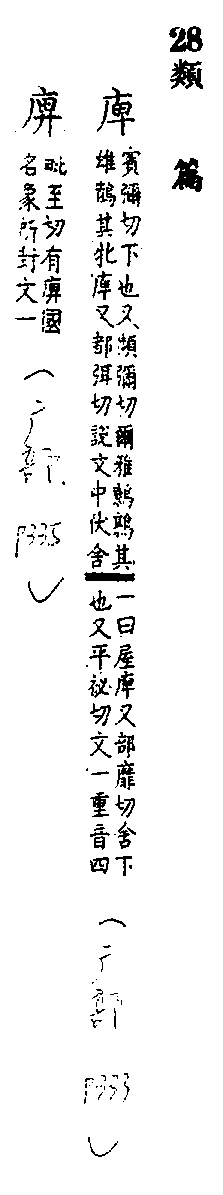 28 類 篇
庳
賓彌切下也又頻彌切爾雅鷯鶉其
雄鶛其牝庳又都弭切說文中伏舍
一曰屋庳又部靡切舍下
也又平祕切文一重音四
（广部 P333）
毗至切有國
名象所封文一
（广部 P335）